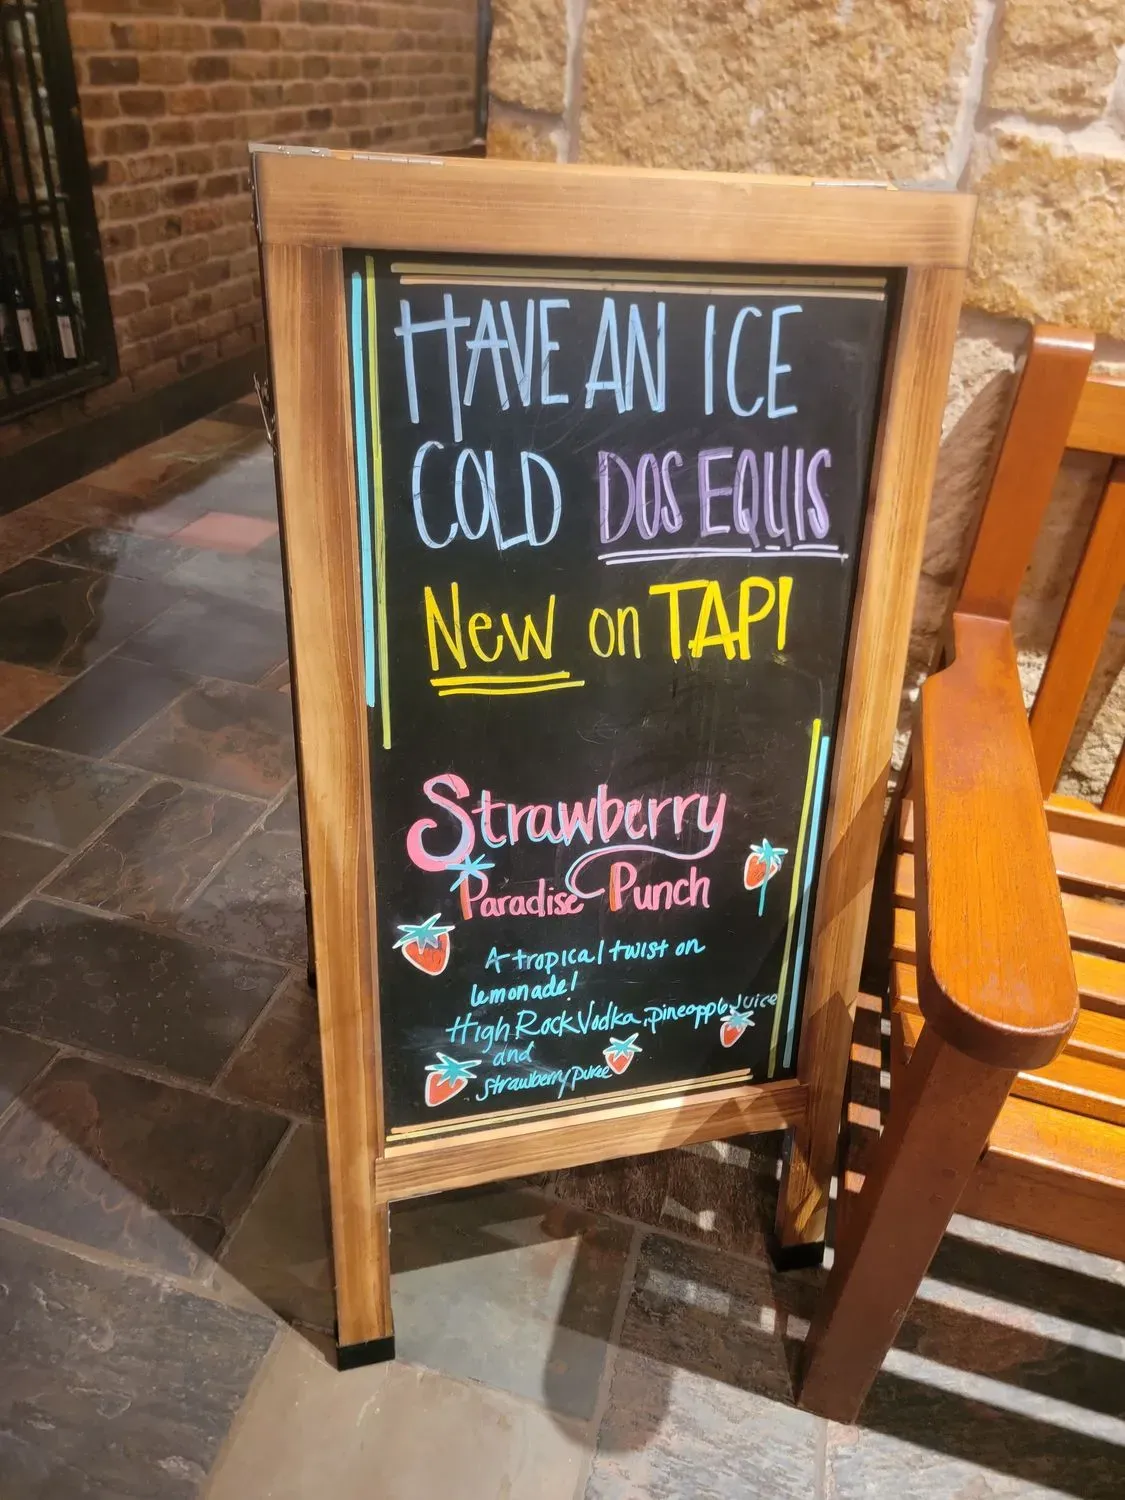 HAVE AN ICE
COLD DOS EQUIS
New on TAP!
Strawberry
Paradise Punch
A tropical twist on
lemonade!
High Rock Vodka, pineapple Juice
and
strawberry puree